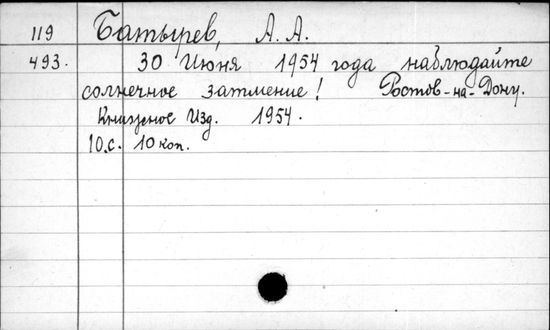 119 Батырев, А. А.
493. 30 Июня 1954 года наблюдайте
солнечное затмение! Ростов-на-Дону.
Книжное Изд. 1954.
10.с. 10 коп.